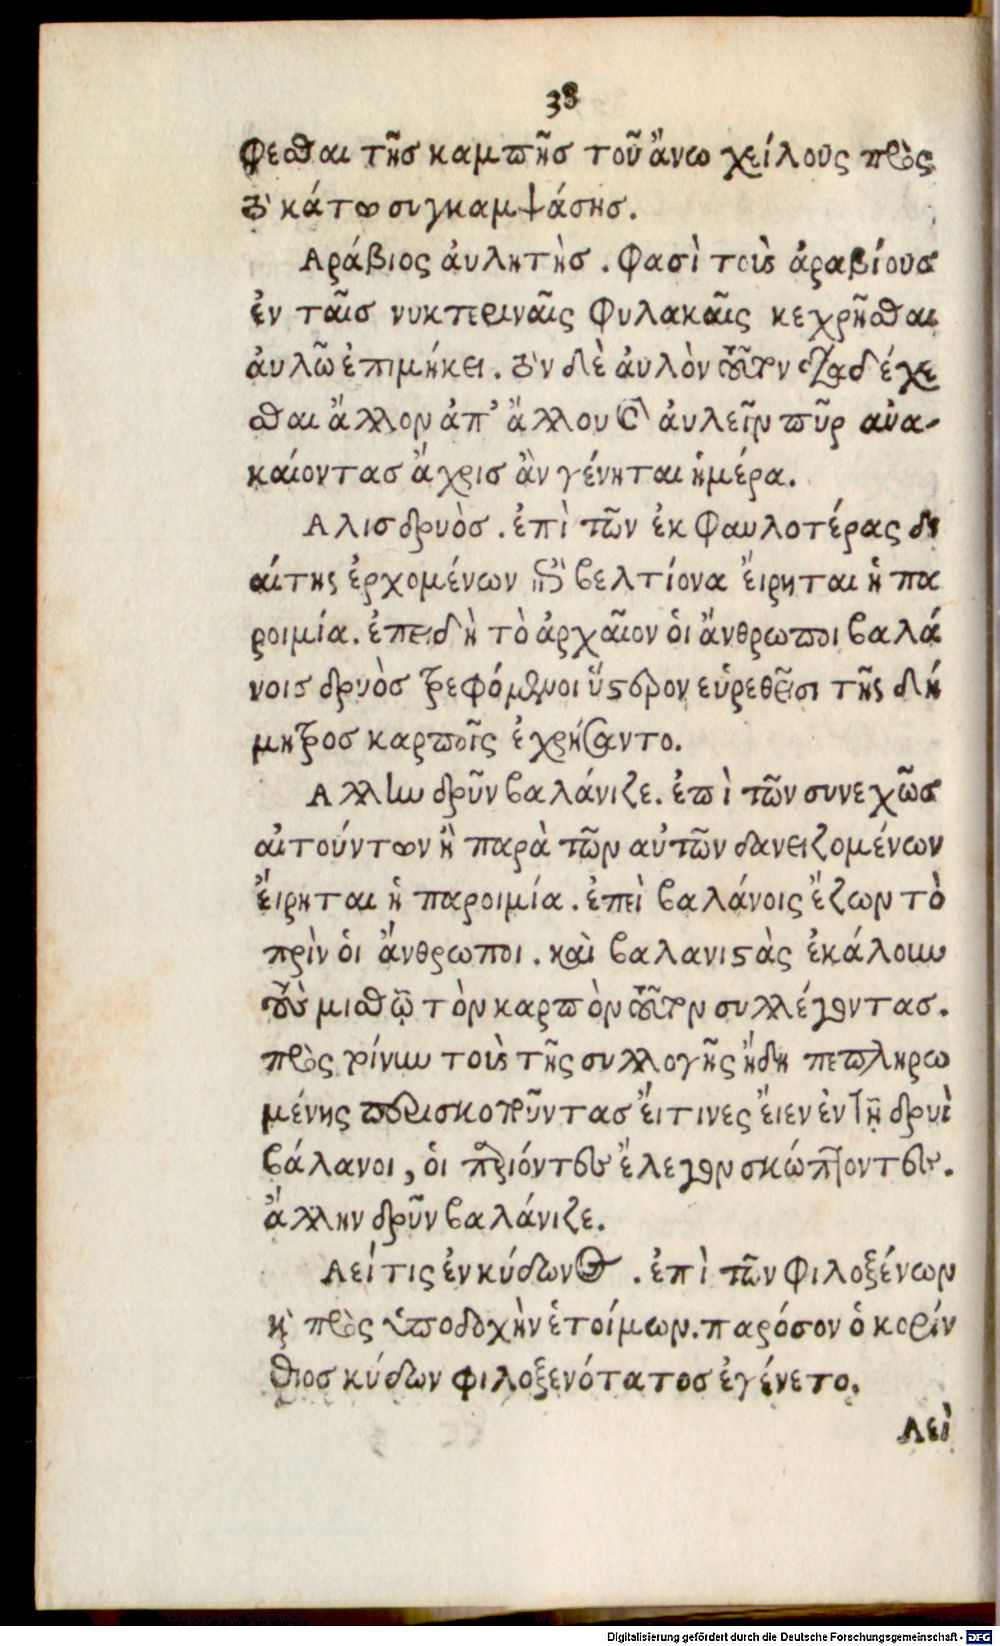 38
φεσθαι τῆς καμπῆς τοῦ ἄνω χείλους πρὸς
τὸ κάτω συγκαμψάσης.
Αράβιος ἀυλητὴς. φασὶ τοὺς ἀραβίους
ἐν ταῖς νυκτεριναῖς φυλακαῖς κεχρῆσθαι
ἀυλῶ ἐπιμήκει. τὸν δὲ ἀυλὸν τοῦτον διαδέχε
σθαι ἄλλον ἀπ' ἄλλου καὶ ἀυλεῖν πῦρ ανα-
καίοντας ἄχρις ἂν γένηται ἡμέρα.
Αλις δρυὸς. ἐπὶ τῶν ἐκ φαυλοτέρας δι
αίτης ἐρχομένων ἐπὶ βελτίονα ἔιρηται ἡ πα
ροιμία. ἐπειδὴ τὸ ἀρχαῖον ὁι ἄνθρωποι βαλά
νοις δρυὸς τρεφόμενοι ὕστερον εὑρεθεῖσι τῆς δή
μητρος καρποῖς ἐχρήσαντο.
Αλλην δρῦν βαλάνιζε. ἐπὶ τῶν συνεχῶς
αἰτούντων ἢ παρὰ τῶν αὐτῶν δανειζομένων
ἔιρηται ἡ παροιμία. ἐπεὶ βαλάνοις ἔζων τὸ
πρὶν ὁι ἄνθρωποι. καὶ βαλανιστὰς ἐκάλουν
τοὺς μισθῷ τὸν καρπὸν τοῦτον συλλέγοντας.
πρὸς γίνουν τοὺς τῆς συλλογῆς ἤδη πεπληρω
μένης περισκοποῦντας ἔιτινες ἔιεν ἐν τῇ δρυῒ
βάλανοι, ὁι παριόντες ἔλεγον σκώπτοντες.
ἄλλην δρῦν βαλάνιζε.
Αεί τις ἐν κύδωνος. ἐπὶ τῶν φιλοξένων
καὶ πρὸς ὑποδοχὴν ἑτοίμων. παρόσον ὁ κορίν
θιος κύδων φιλοξενότατος ἐγένετο.
Αεὶ
Digitalisierung gefördert durch die Deutsche Forschungsgemeinschaft - DFG